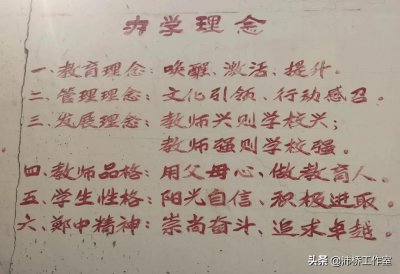 办学理念
一、教育理念：唤醒、激活、提升。
二、管理理念：文化引领、行动感召。
三、发展理念：教师兴则学校兴；
教师强则学校强。
四、教师品格：用父母心、做教育人。
五、学生性格：阳光自信、积极进取。
六、郑中精神：崇尚奋斗、追求卓越。
头条 @沛桥工作室